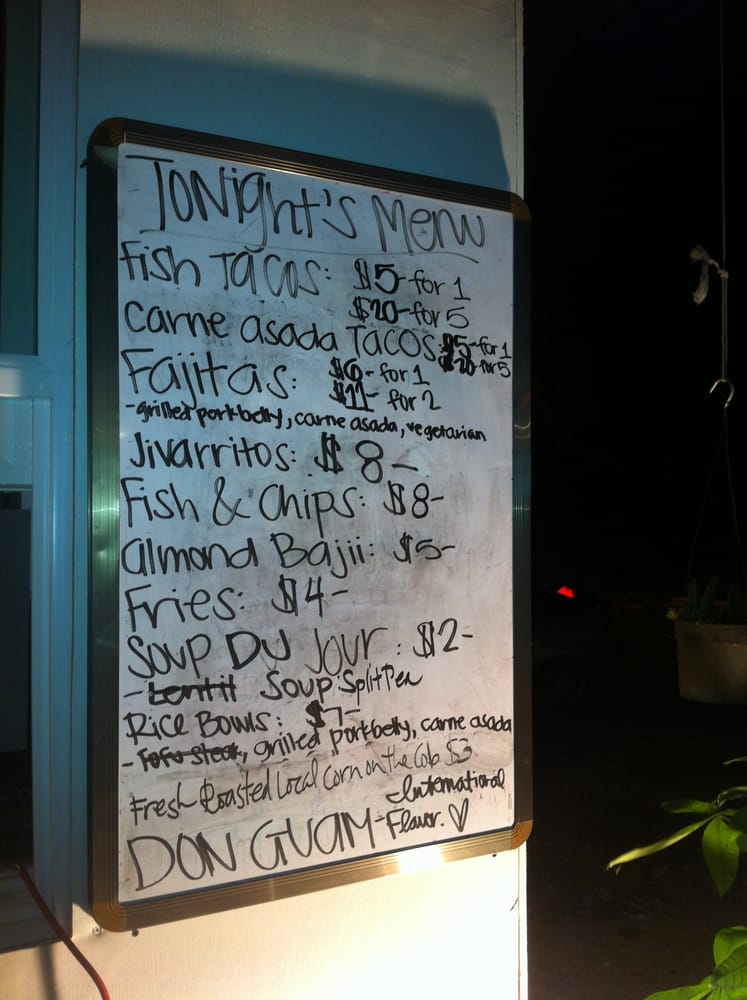 Tonight's Menu
Fish Tacos: $5-for 1
$20-for 5
Carne asada Tacos: $5-for 1
$20-for 5
Fajitas: $6-for 1
$11-for 2
-grilled porkbelly, carne asada, vegetarian
Jivarritos: $8-
Fish & Chips: $8-
almond Bajii: $5-
Fries: $4-
Soup Du Jour: $2-
-Lentil Soup: Split Pea
Rice Bowls: $7-
-Tofu Steak, grilled porkbelly, carne asada
Fresh Roasted Local Corn on the Cob $3
DON GUAM-International
Flavor. ♡